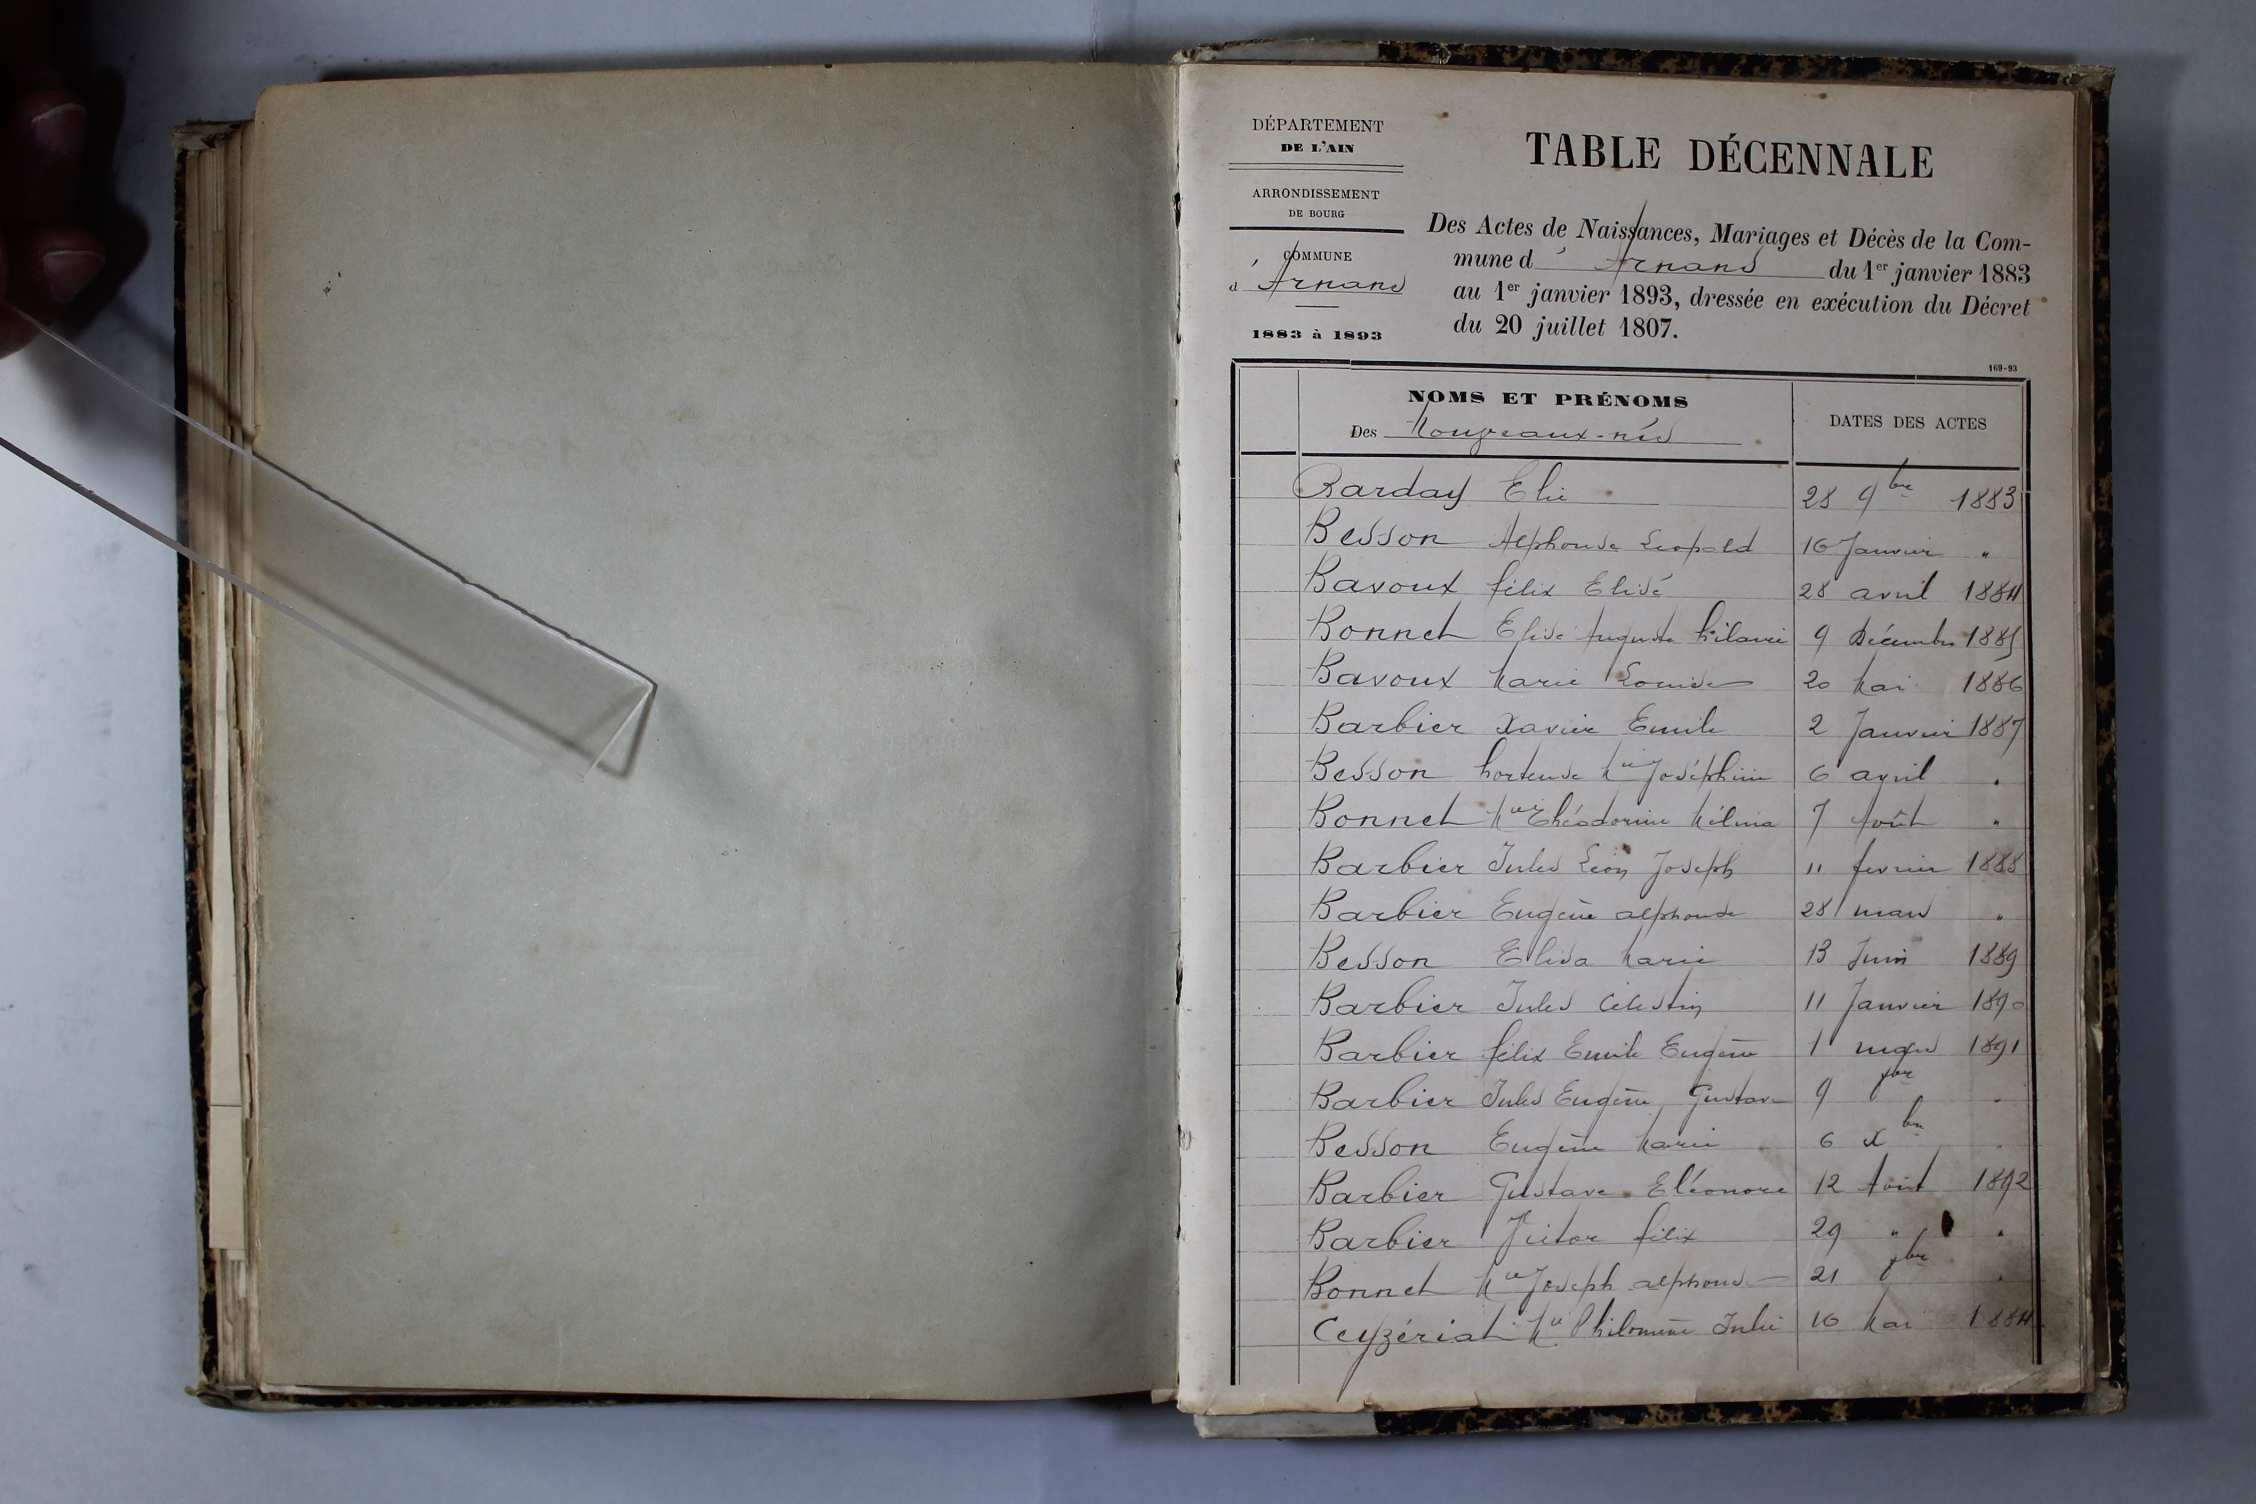 DÉPARTEMENT
DE L'AIN
ARRONDISSEMENT
DE BOURG
COMMUNE
d'Arnans
1883 à 1893
TABLE DÉCENNALE
Des Actes de Naissances, Mariages et Décès de la Com-
mune d'Arnans du 1er janvier 1883
au 1er janvier 1893, dressée en exécution du Décret
du 20 juillet 1807.
169-93
NOMS ET PRÉNOMS
Des Nouveaux-nés
DATES DES ACTES
Barday Elie 28 9bre 1883
Besson Alphonse Leopold 16 Janvier "
Bavoux félix Elisé 28 avril 1884
Bonnet Elisé Auguste hilaire 9 Décembre 1885
Bavoux Marie Louise 20 Mai 1886
Barbier Xavier Emile 2 Janvier 1887
Besson hortense Mie Joséphine 6 avril "
Bonnet Mie Théodorine Mélina 7 Août "
Barbier Jules Léon Joseph 11 fevrier 1888
Barbier Eugène alphonse 28 mars "
Besson Elisa Marie 13 Juin 1889
Barbier Jules Célestin 11 Janvier 1890
Barbier félix Emile Eugène 1 mars 1891
Barbier Jules Eugène Gustave 9 "
Besson Eugène Marie 6 Xbre "
Barbier Gustave Eléonore 12 Août 1892
Barbier Victor félix 29 " "
Bonnet Mie Joseph alphonse 21 "
Ceyzériat Mie Philomène Julie 16 Mai 1884